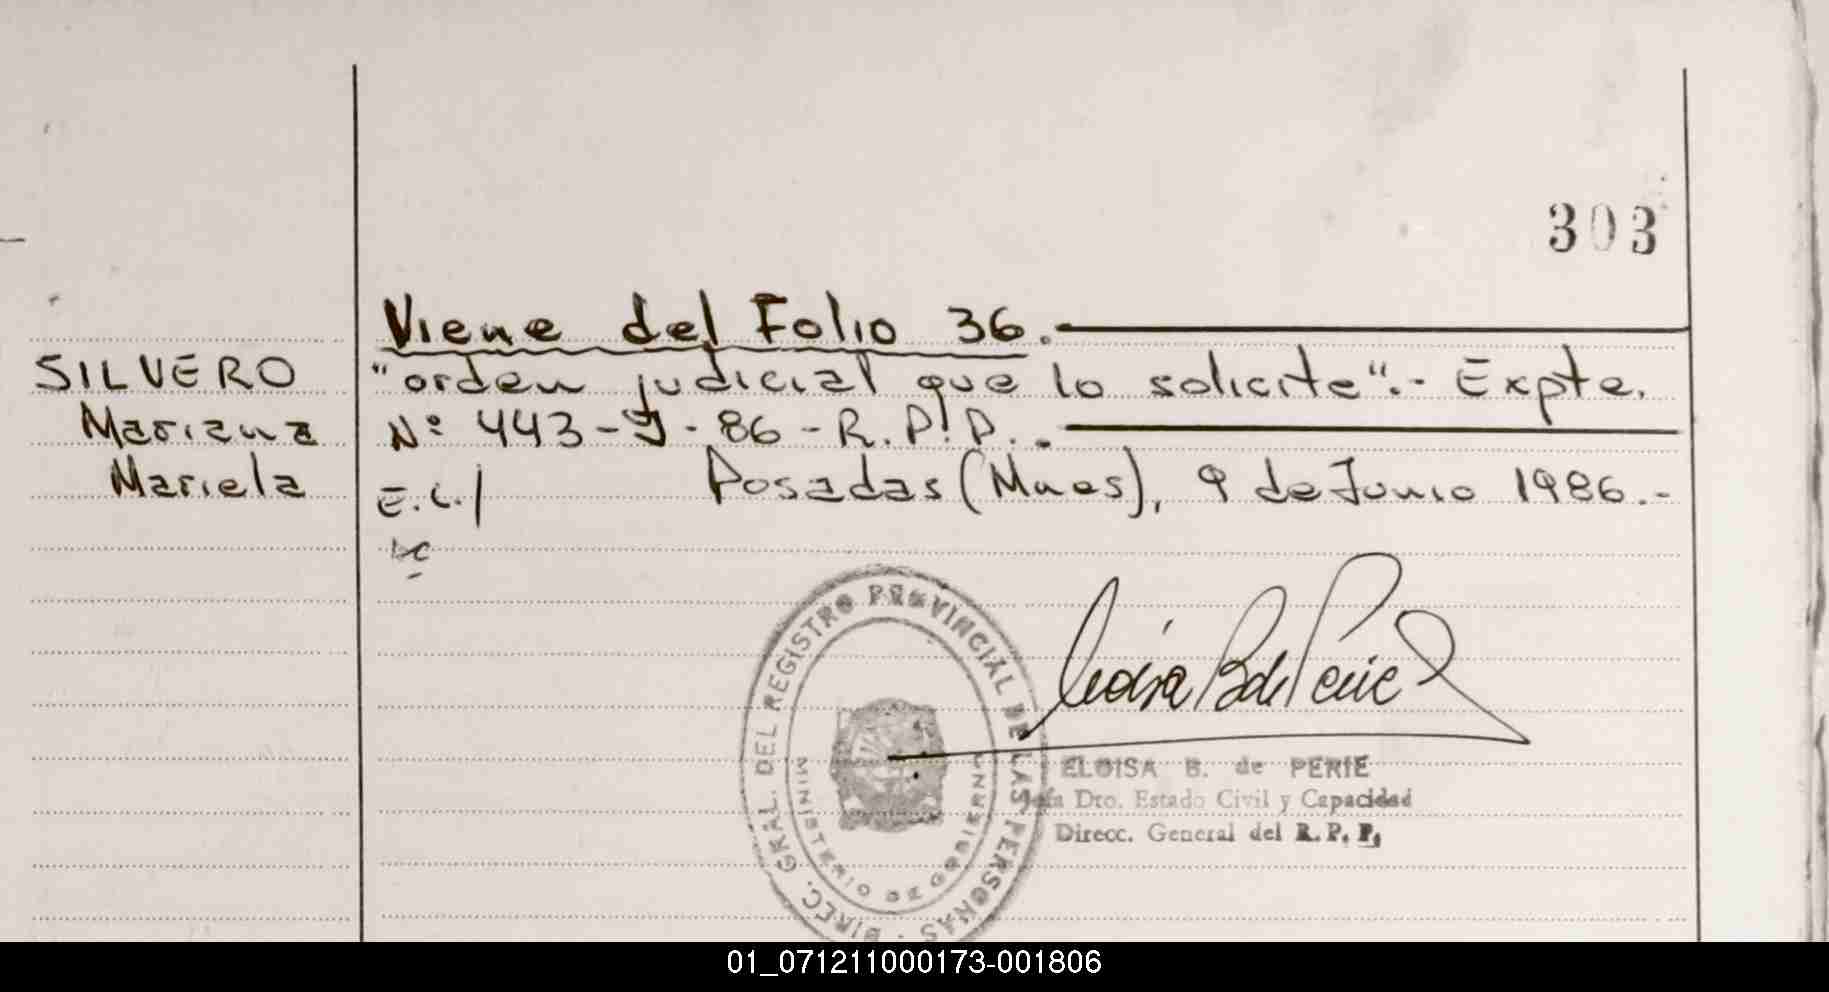 303
Viene del Folio 36.
SILVERO
Mariana
Mariela
"orden judicial que lo solicite".- Expte.
Nº 443-J-86-R.P.P..
E.C./ Posadas (Mnes), 9 de Junio 1986.-
DIREC. GRAL. DEL REGISTRO PROVINCIAL DE LAS PERSONAS
MINISTERIO DE GOBIERNO
ELOISA B. de PERIE
Jefa Dto. Estado Civil y Capacidad
Direcc. General del R. P. P.
01_071211000173-001806